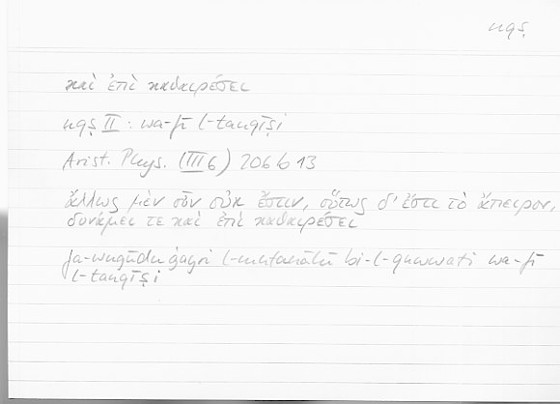 nqṣ
καὶ ἐπὶ καθαιρέσει
nqṣ II : wa-fī l-tanqīṣi
Arist. Phys. (III 6) 206 b 13
ἄλλως μὲν οὖν οὐκ ἔστιν, οὕτως δ' ἔστι τὸ ἄπειρον,
δυνάμει τε καὶ ἐπὶ καθαιρέσει
fa-wuǧūdu ġayri l-mutanāhī bi-l-quwwati wa-fī
l-tanqīṣi